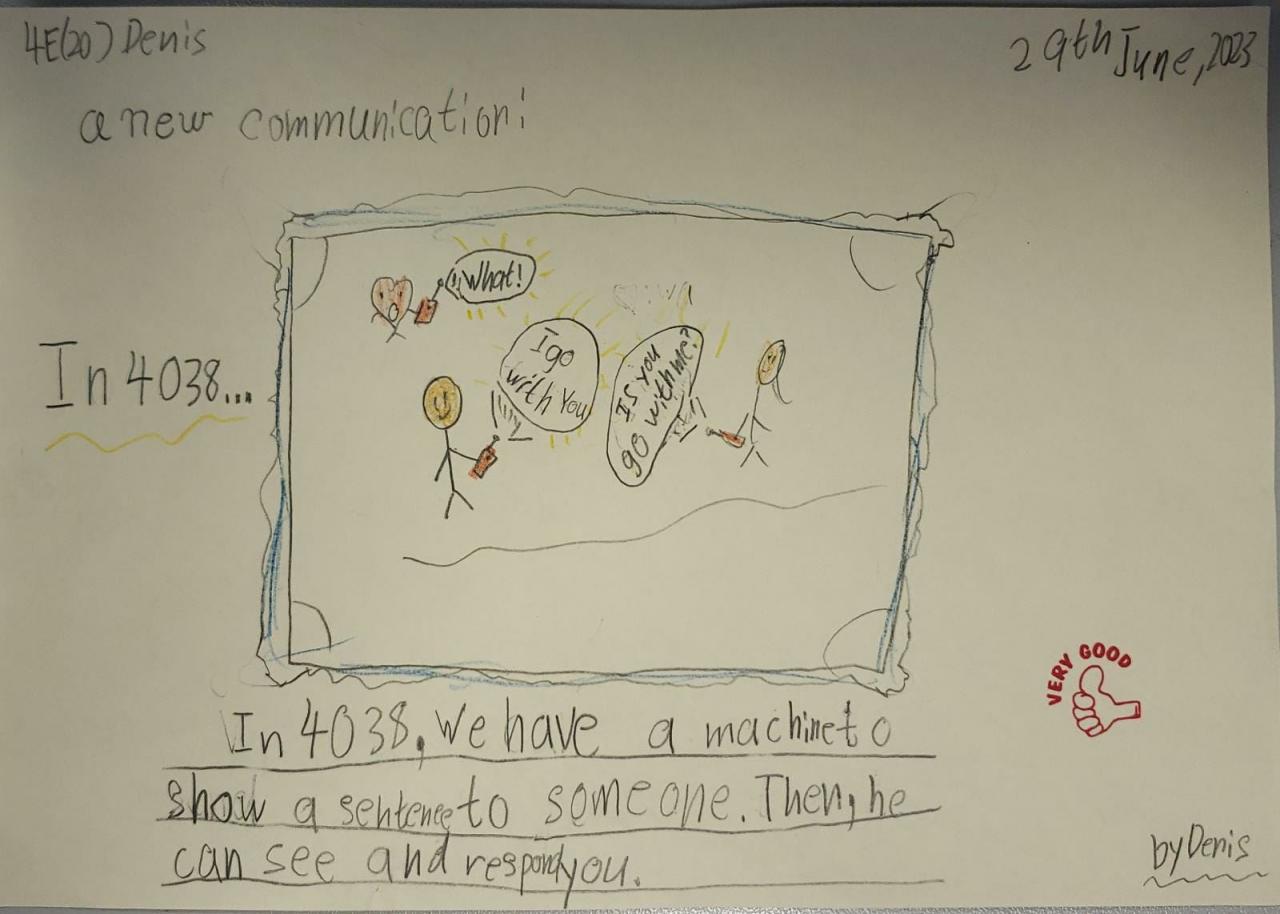 4E(20) Denis
29th June, 2023
a new communication:
What!
I go
with You
Is you
go with me?
In 4038...
VERY GOOD
In 4038, we have a machine to
show a sentence to someone. Then, he
can see and respond you.
by Denis